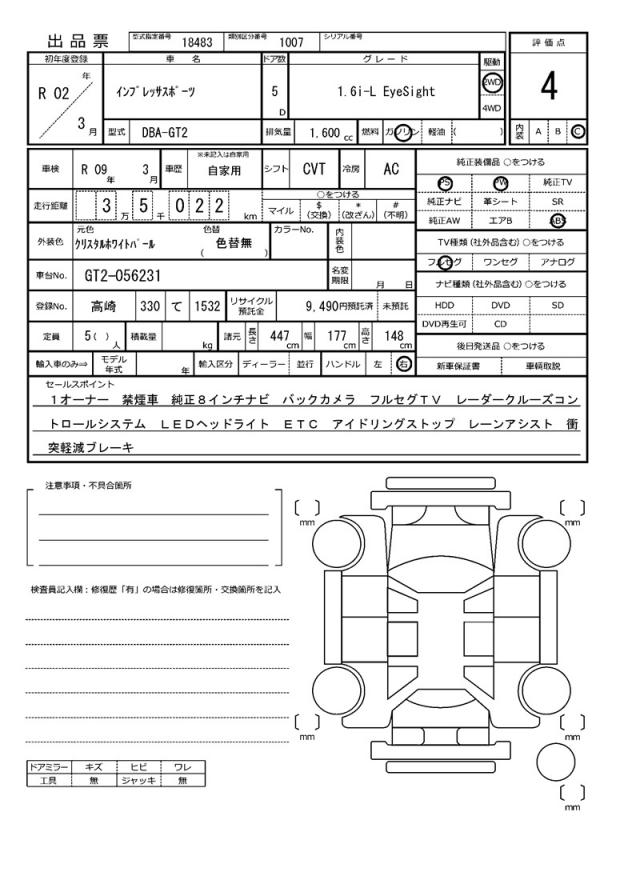 出品票
型式指定番号 18483 類別区分番号 1007 シリアル番号
評価点
4
内装 A B C
初年度登録 車名 ドア数 グレード 駆動
R 02 年 3 月
インプレッサスポーツ 5 D 1.6i-L EyeSight 2WD 4WD
型式 DBA-GT2 排気量 1.600 cc 燃料 ガソリン 軽油 ( )
車検 R 09 年 3 月 車歴 ※未記入は自家用 自家用 シフト CVT 冷房 AC
走行距離 3 万 5 千 0 2 2 km
○をつける
マイル $(交換) *(改ざん) #(不明)
外装色 元色 クリスタルホワイトパール 色替 ( 色替無 ) カラーNo. 内装色
車台No. GT2-056231 名変期限 月 日
登録No. 高崎 330 て 1532 リサイクル預託金 9,490円預託済 未預託
定員 5( )人 積載量 kg 諸元 長さ 447 cm 幅 177 cm 高さ 148 cm
輸入車のみ⇒ モデル年式 年 輸入区分 ディーラー 並行 ハンドル 左 右
純正装備品 ○をつける
PS PW 純正TV
純正ナビ 革シート SR
純正AW エアB ABS
TV種類(社外品含む)○をつける
フルセグ ワンセグ アナログ
ナビ種類(社外品含む)○をつける
HDD DVD SD
DVD再生可 CD
後日発送品 ○をつける
新車保証書 車輌取説
セールスポイント
1オーナー 禁煙車 純正8インチナビ バックカメラ フルセグTV レーダークルーズコン
トロールシステム LEDヘッドライト ETC アイドリングストップ レーンアシスト 衝
突軽減ブレーキ
注意事項・不具合箇所
検査員記入欄:修復歴「有」の場合は修復箇所・交換箇所を記入
ドアミラー キズ ヒビ ワレ
工具 無 ジャッキ 無
mm
mm
mm
mm
mm